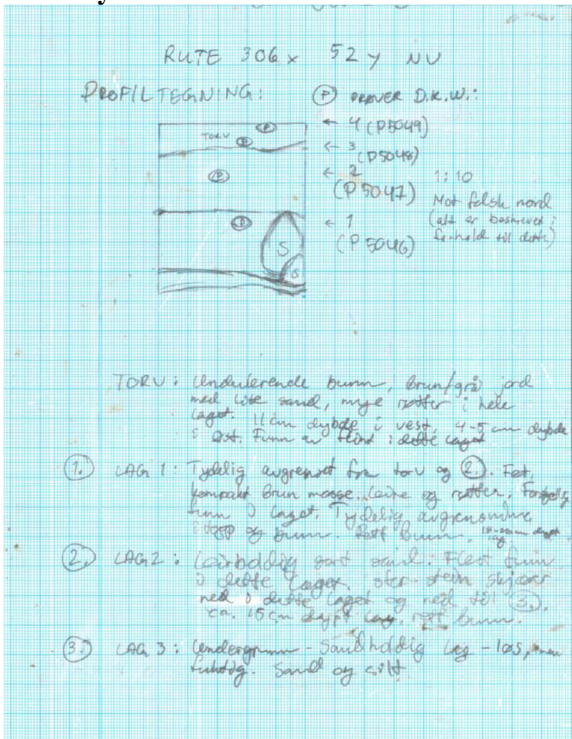 RUTE 306x 52y NV
PROFILTEGNING: (P) PRØVER D.K.W.:
TORV P P ← 4 (P5049)
← 3 (P5048)
P ← 2 (P5047) 1:10
Mot falsk nord
(alt er beskrevet i
forhold til dette)
P ← 1 (P5046)
S
S
TORV: Undulerende bunn, brun/grå jord
med lite sand, mye røtter i hele
laget. 11 cm dybde i vest, 4-5 cm dybde
i øst. Funn av flint i dette laget
1. LAG 1: Tydelig avgrenset fra torv og 2. Fet,
kompakt brun masse. Leire og røtter.
funn i laget. Tydelig avgrensning
i topp og bunn. Rett bunn,
2. LAG 2: Leirholdig sort sand. Flest funn
i dette laget, stein skjærer
ned i dette laget og ned til 3.
ca. 15 cm dypt lag, rett bunn.
3. LAG 3: Undergrunn - Sandholdig lag - løs, men
fuktig. Sand og silt.